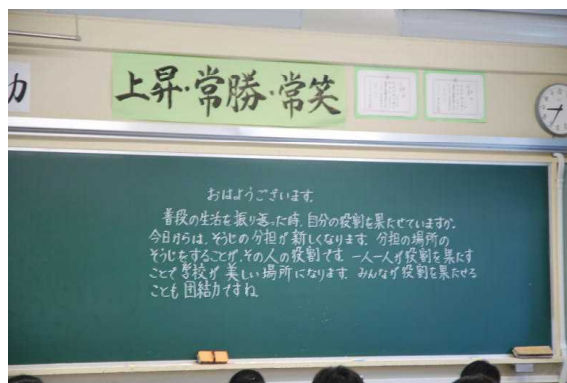 力
上昇・常勝・常笑
おはようございます。
普段の生活を振り返った時、自分の役割を果たせていますか。
今日からは、そうじの分担が新しくなります。分担の場所の
そうじをすることが、その人の役割です。一人一人が役割を果たす
ことで学校が美しい場所になります。みんなが役割を果たせる
ことも団結力ですね。